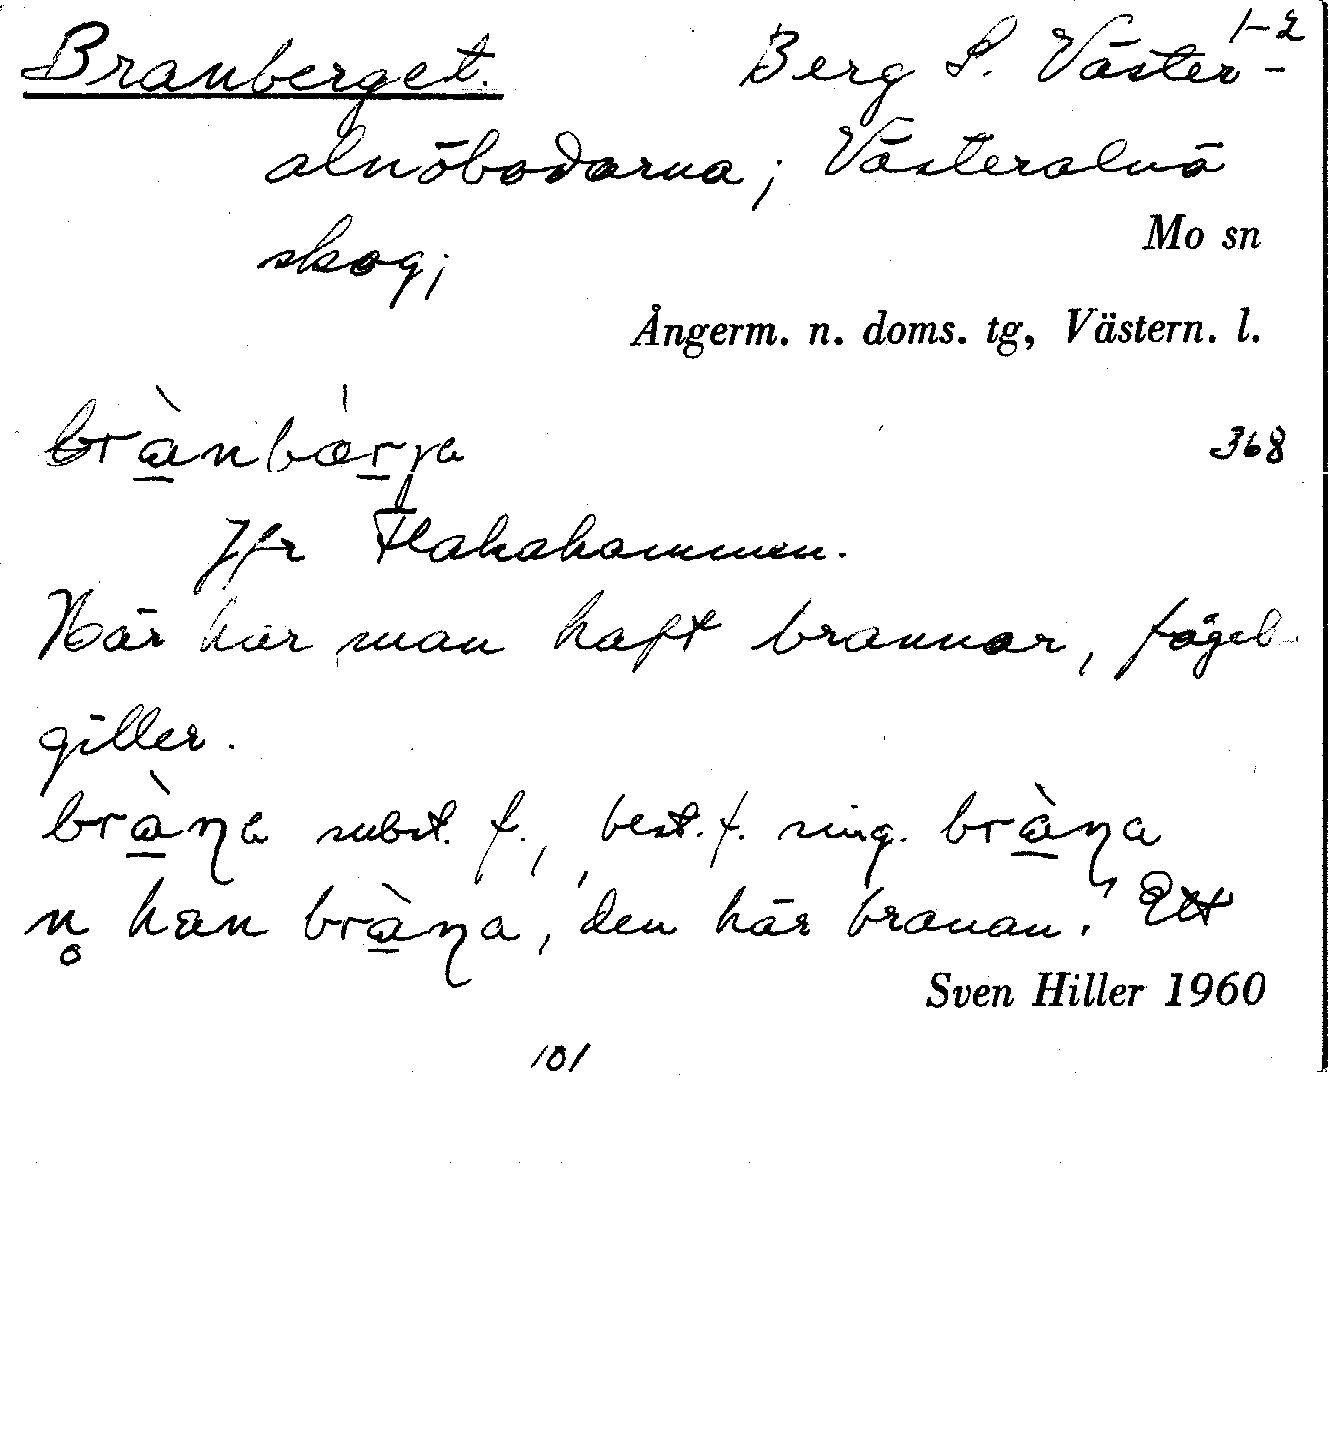 1-2
Branberget. Berg S. Väster-
alnöbodarna; Västeralnö
skog;
Mo sn
Ångerm. n. doms. tg, Västern. l.
brànbærja 368
Jfr Flakahammen.
Här har man haft brannar, fågel-
giller.
bràna subst. f., best. f. sing. bràna
n̥ hæn bràna, 'den här branan.' Ett
Sven Hiller 1960
101